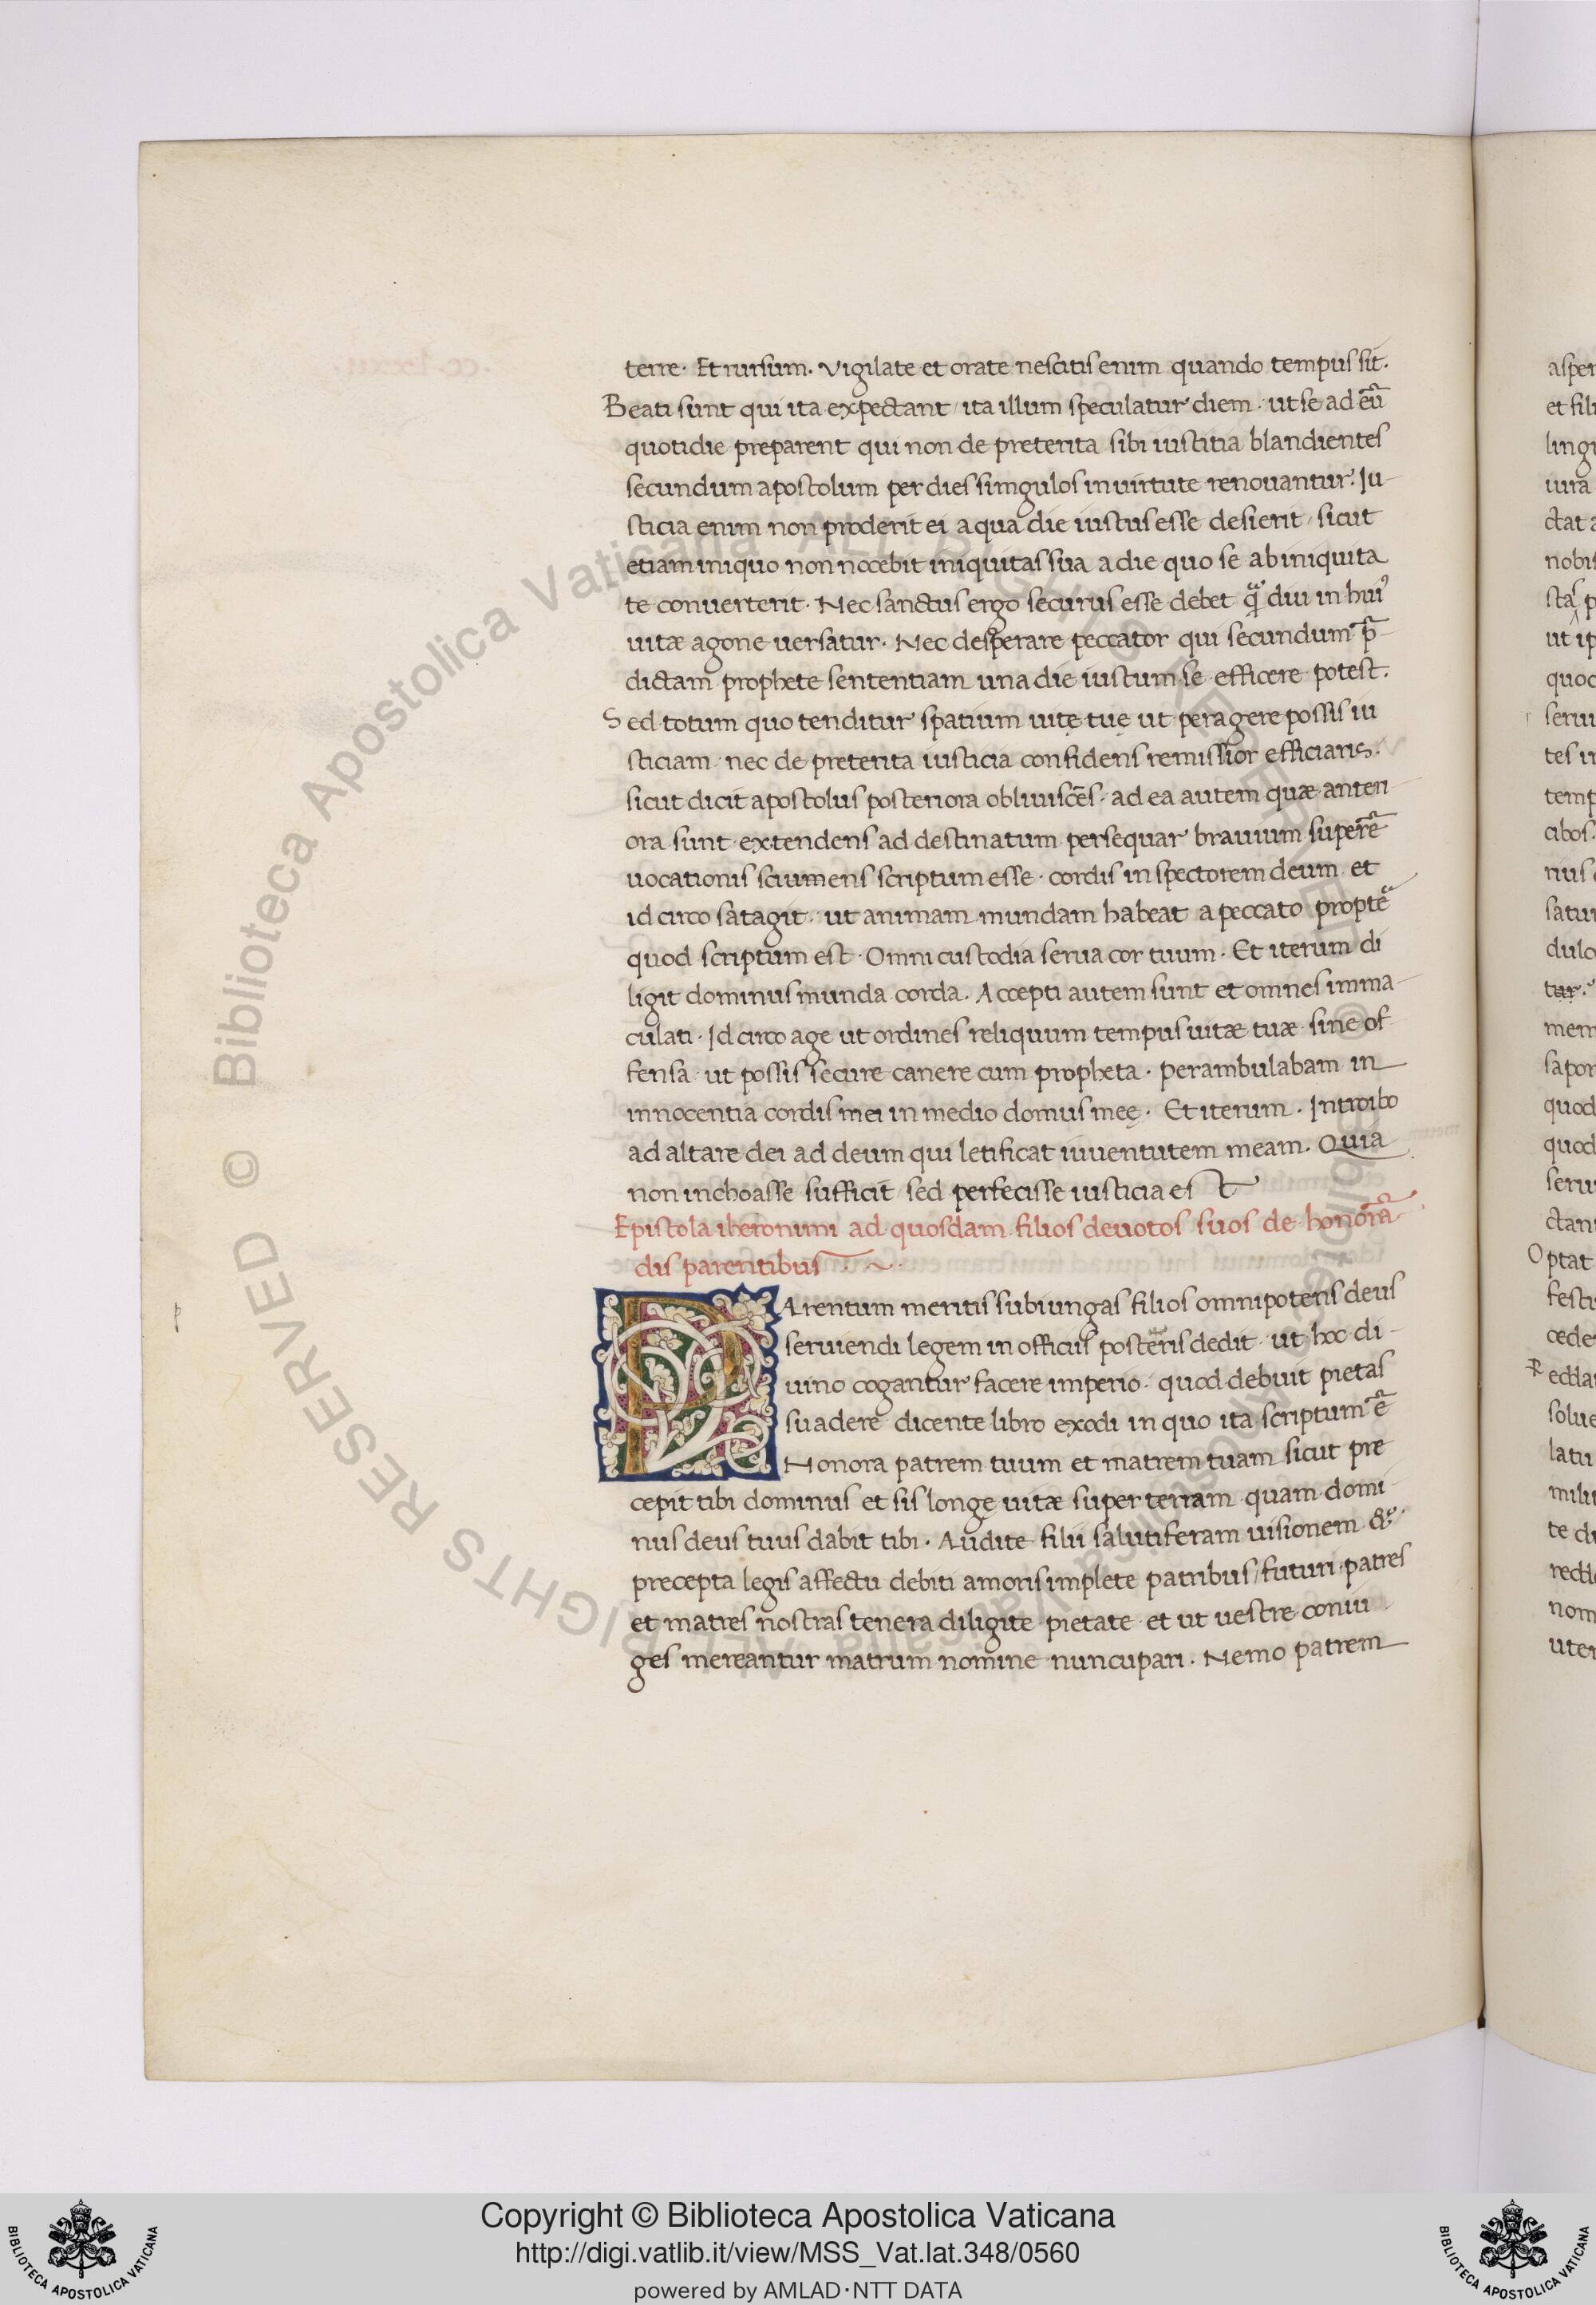 terre. Et rursum. Vigilate et orate nescitis enim quando tempus sit.
Beati sunt qui ita expectant / ita illum speculatur diem. ut se ad eũ
quotidie preparent qui non de preterita sibi iustitia blandientes
secundum apostolum per dies simgulos in uirtute renouantur. Iu-
sticia enim non proderit ei a qua die iustus esse desierit / sicut
etiam iniquo non nocebit iniquitas sua a die quo se ab iniquita
te conuerterit. Nec sanctus ergo securus esse debet diu in hui9
uitæ agone uersatur. Nec desperare peccator qui secundum p̃-
dictam prophete sententiam una die iustum se efficere potest.
Sed totum quo tenditur spatium uitę tuę ut peragere possis iu
sticiam. nec de preterita iusticia confidens remissior efficiaris.
sicut dicit apostolus posteriora obliuiscẽs. ad ea autem quæ anteri
ora sunt extendens ad destinatum persequar brauium supernẽ
uocationis sciumens scriptum esse. cordis inspectorem deum et
id circo satagit. ut animam mundam habeat a peccato proptẽ
quod scriptum est. Omni custodia serua cor tuum. Et iterum di
ligit dominus munda corda. Accepti autem sunt et omnes imma-
culati. Id circo age ut ordines reliquum tempus uitæ tuæ sine of
fensa. ut possis secure canere cum propheta. perambulabam in
innocentia cordis mei in medio domus meę. Et iterum. Introibo
ad altare dei ad deum qui letificat iuuentutem meam. Quia
non inchoasse sufficit / sed perfecisse iusticia est
Epistola iheronimi ad quosdam filios deuotos suos de honorã
dis parentibus
PArentum meritis subiungas filios omnipotens deus
seruiendi legem in officiis posteris dedit. ut hoc di-
uino cogantur facere imperio. quod debuit pietas
suadere dicente libro exodi in quo ita scriptum ẽ
Honora patrem tuum et matrem tuam sicut pre
cepit tibi dominus et sis longę uitæ super terram quam domi-
nus deus tuus dabit tibi. Audite filii salutiferam uisionem &
precepta legis affectu debiti amoris implete patribus / futuri patres
et matres nostras tenera diligite pietate et ut uestre coniu
ges mereantur matrum nomine nuncupari. Nemo patrem
Copyright © Biblioteca Apostolica Vaticana
http://digi.vatlib.it/view/MSS_Vat.lat.348/0560
powered by AMLAD·NTT DATA